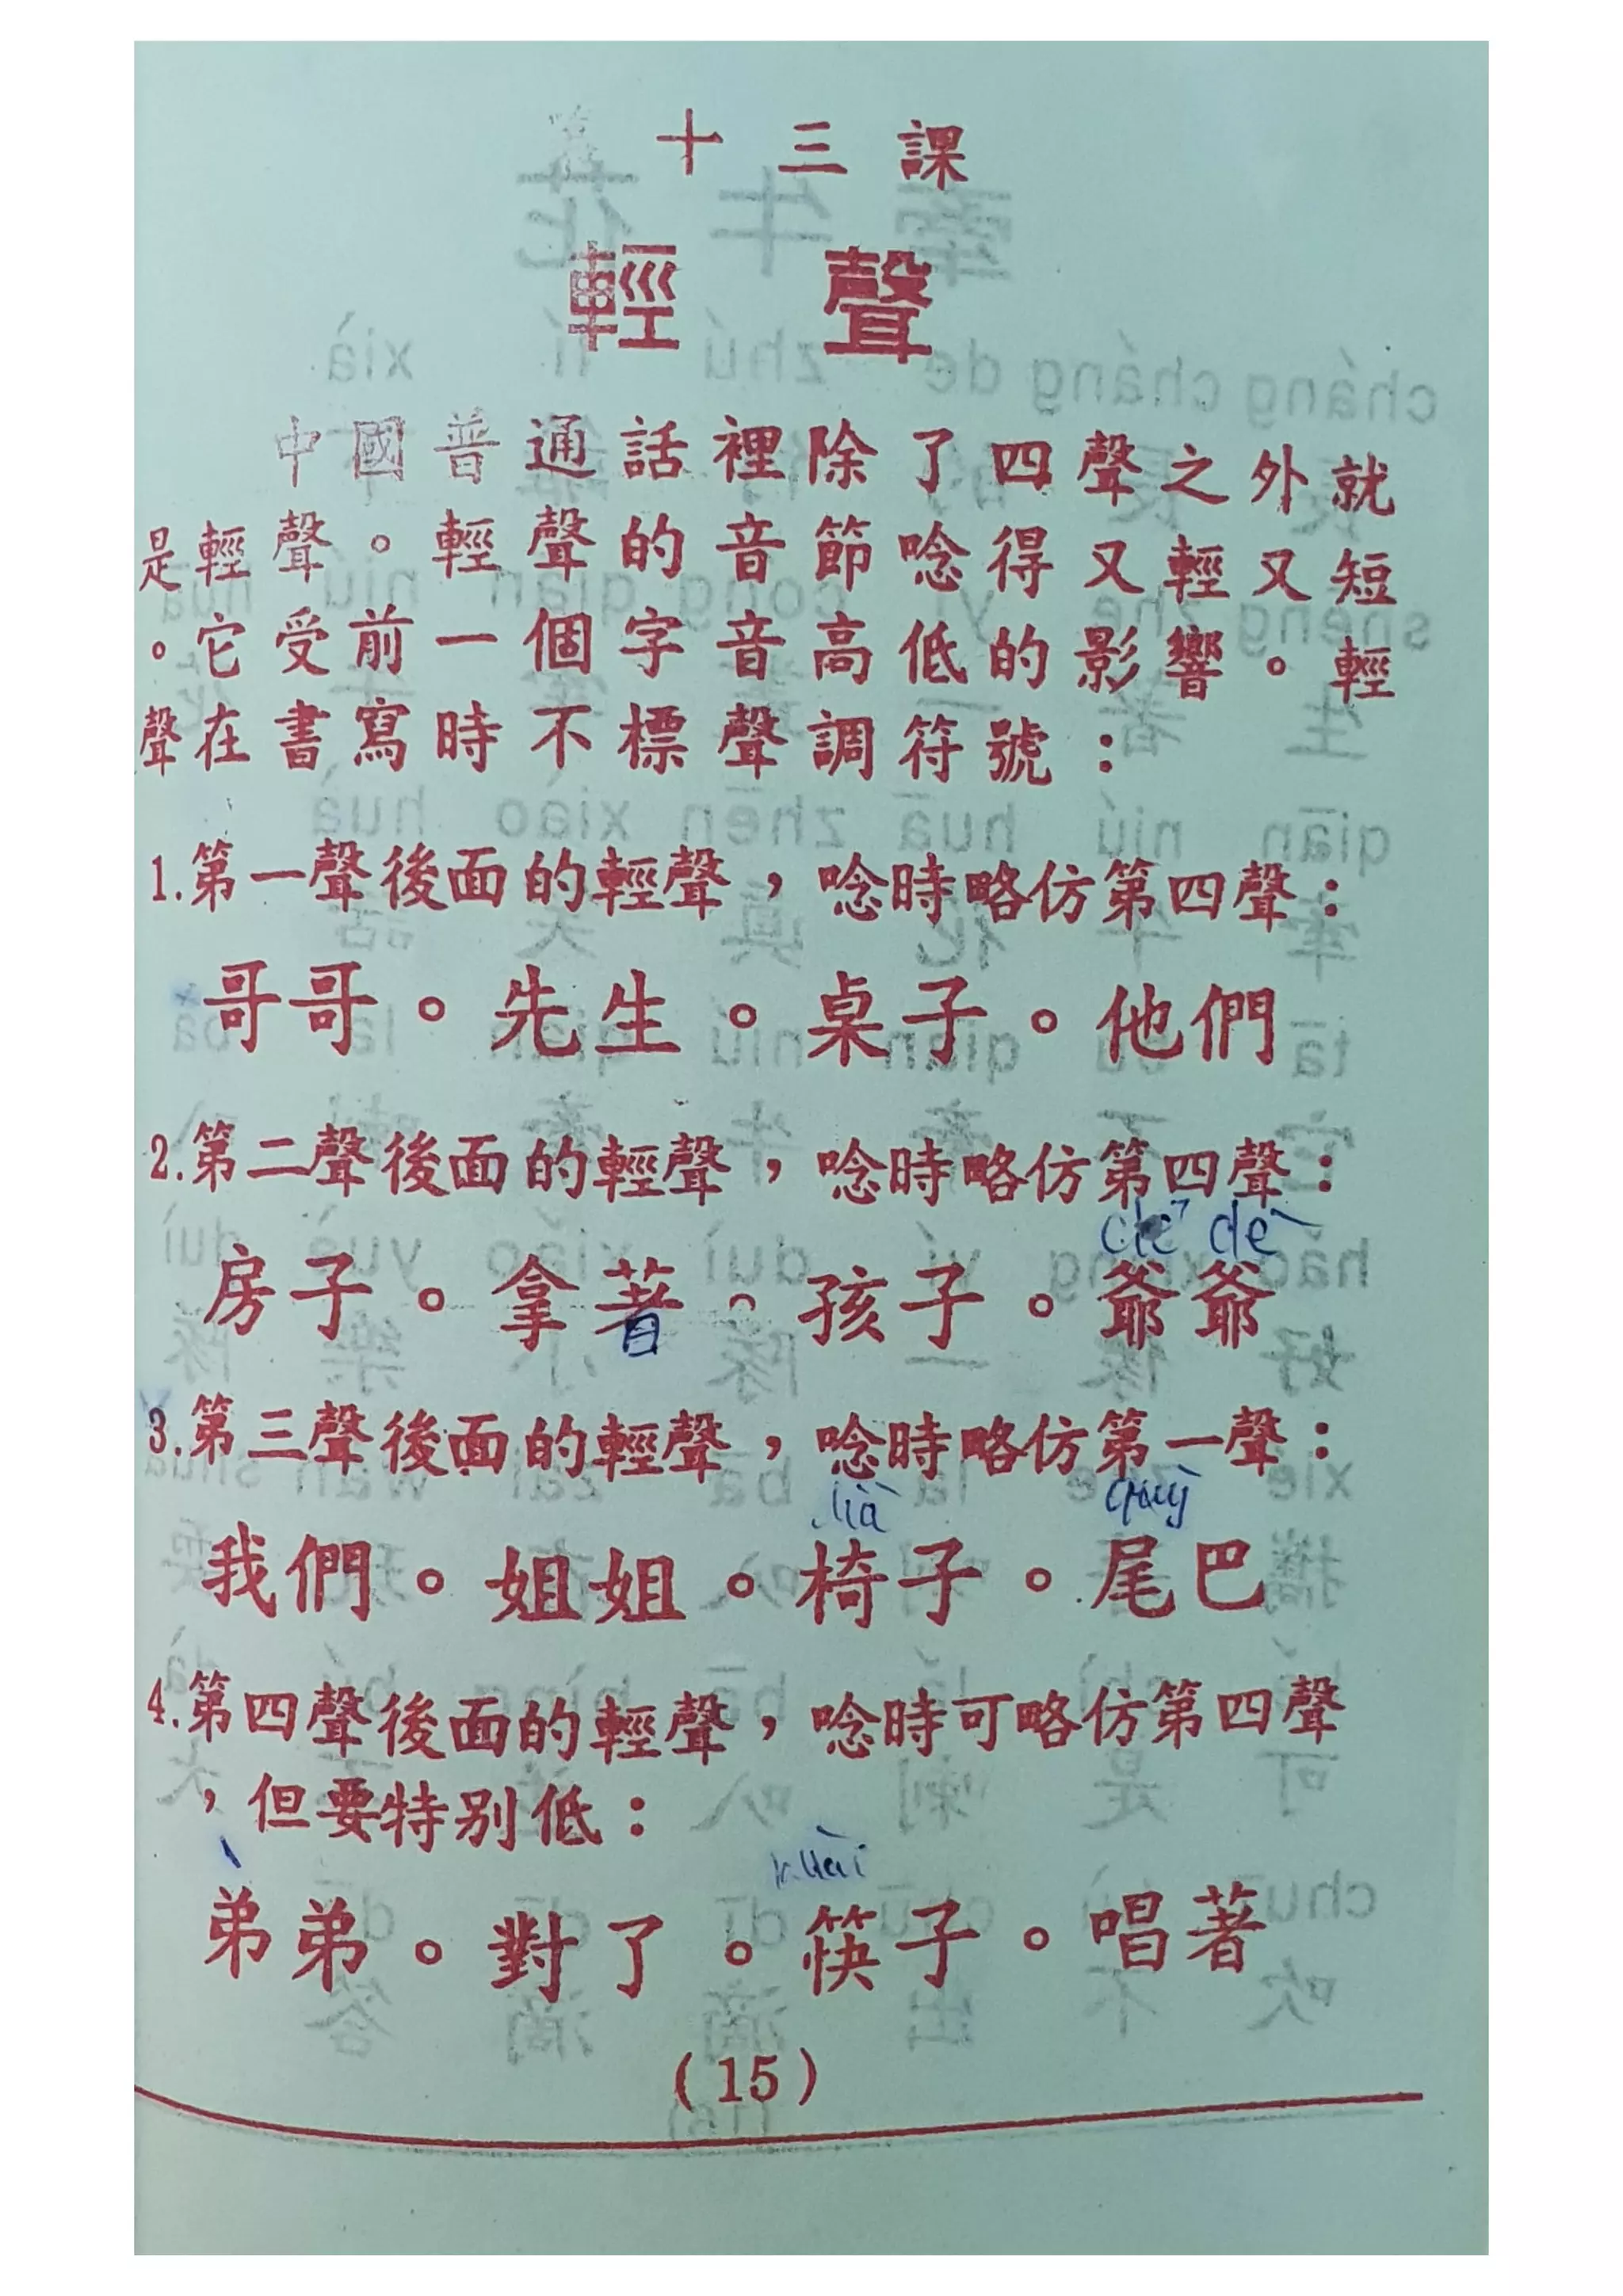 十三課
輕聲
中國普通話裡除了四聲之外就
是輕聲。輕聲的音節唸得又輕又短
。它受前一個字音高低的影響。輕
聲在書寫時不標聲調符號：
1.第一聲後面的輕聲，唸時略仿第四聲：
哥哥。先生。桌子。他們
2.第二聲後面的輕聲，唸時略仿第四聲：
房子。拿著。孩子。爺爺
3.第三聲後面的輕聲，唸時略仿第一聲：
我們。姐姐。椅子。尾巴
4.第四聲後面的輕聲，唸時可略仿第四聲
，但要特別低：
弟弟。對了。筷子。唱著
(15)